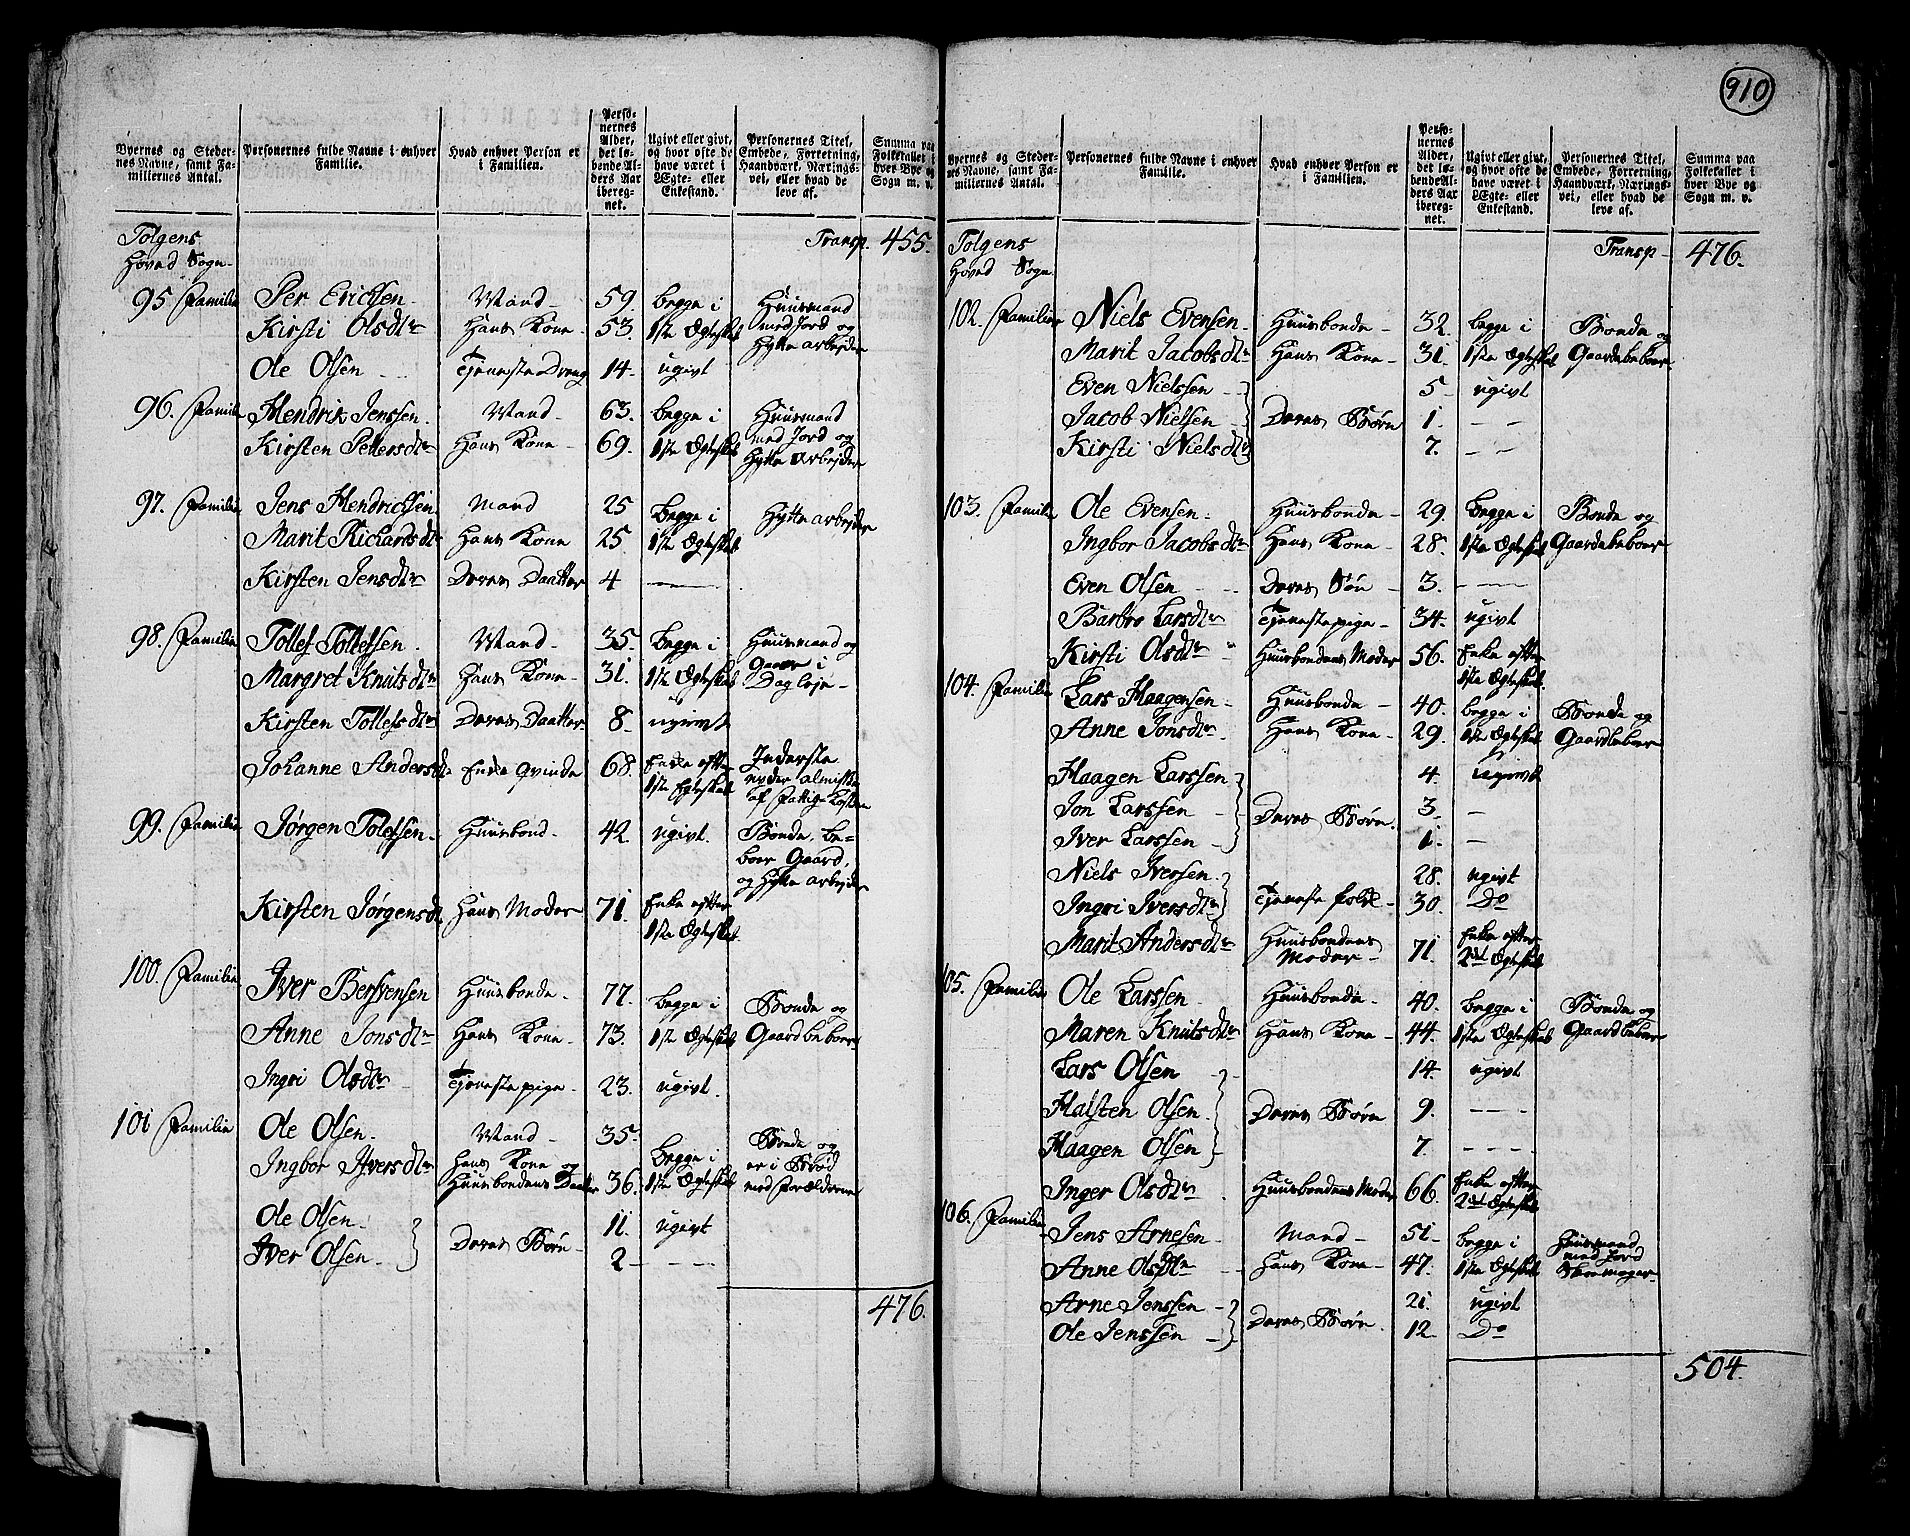 910
Byernes og Steder-
nes Navne, samt Fa-
miliernes Antal.
Personernes fulde Navne i enhver
Familie.
Hvad enhver Person er
i Familien.
Perso-
nernes
Alder,
det lø-
bende Al-
ders Aar
ibereg-
net.
Ugivt eller givt,
og hvor ofte de
have været i
Ægte- eller
Enkestand.
Personernes Titel,
Embede, Forretning,
Haandværk, Nærings-
vei, eller hvad de
leve af.
Summa paa
Folketallet i
hver Bye og
Sogn m. v.
Tolgens
Hoved Sogn
Transp. 455.
95 Familie Per Ericksen Mand 59. begge i Huusmand
Kirsti Olsdtr Hans Kone 53. 1ste Ægteskab med Jord og
Hytte arbejder
Ole Olsen Tjeneste Dreng 14. ugivt
96. Familie Hendrik Jenssen. Mand 63. begge i Huusmand
Kirsten Pettersdtr Hans Kone 69. 1ste Ægteskab med Jord og
Hytte Arbejder
97. Familie Jens Hendricksen. Mand 25 begge i Hytte arbejder
Marit Richardsdtr Hans Kone 25. 1ste Ægteskab
Kirsten Jensdtr Deres Daatter 4 —
98. Familie Tollef Tollefsen. Mand 35. begge i Huusmand og
Margret Knutsdtr Hans Kone 31. 1ste Ægteskab gaaer i
Dagleje
Kirsten Tollefsdtr Deres Daatter 8. ugivt
Johanne Andersd Enke Qvinde 68. Enke efter Inderste
1ste Egteskab nyder almisse
af Fattige Casten
99. Familie Jørgen Tolefsen. Huusbond 42. ugivt. Bonde, be-
boer Gaard,
og Hytte arbejder
Kirsten Jørgensd Hans Moder 71. Enke efter
1ste Ægteskab
100. Familie Iver Bersvensen Huusbonde 77. begge i Bonde og
Anne Jonsdtr Hans Kone 73. 1ste Ægteskab Gaardbeboer
Ingri Olsdtr Tjenestepige 23. ugivt.
101 Familie Ole Olsen. Mand 35. begge i Bonde og
Ingbor Iversdtr Hans Kone og
Huusbondens Daatter 36. 1ste Ægteskab er i Brød
med Forældrene
Ole Olsen. } Deres Børn 11. ugivt
Iver Olsen } 2 - - -
476.
Byernes og Steder-
nes Navne, samt Fa-
miliernes Antal.
Personernes fulde Navne i enhver
Familie.
Hvad enhver Person er
i Familien.
Perso-
nernes
Alder,
det lø-
bende Al-
ders Aar
ibereg-
net.
Ugivt eller givt,
og hvor ofte de
have været i
Ægte- eller
Enkestand.
Personernes Titel,
Embede, Forretning,
Haandværk, Nærings-
vei, eller hvad de
leve af.
Summa paa
Folketallet i
hver Bye og
Sogn m. v.
Tolgens
Hoved Sogn
Transp 476.
102. Familie Niels Evensen. Huusbonde 32. begge i Bonde og
Marit Jacobsdtr Hans Kone 31. 1ste Ægteskab Gaardebeboer
Even Nielssen } 5 ugivt
Jacob Nielsen } Deres Børn 1. - -
Kirsti Nielsdtr } 7. - -
103. Familie Ole Evensen. Huusbonde 29. begge i Bonde og
Ingbor Jacobsdtr Hans Kone 28. 1ste Ægteskab Gaardebeboer
Even Olsen Deres Søn 3. —
Barbro Larsdtr Tjenestepige 34. ugivt
Kirsti Olsdtr Huusbondens Moder 56. Enke efter
1ste Ægteskab
104. Familie Lars Haagensen Huusbonde 40. begge i Bonde og
Anne Jonsdtr. Hans Kone 29. 1ste Ægteskab Gaardbeboer
Haagen Larssen } 4. ugivt
Jon Larssen } Deres Børn. 3. -
Iver Larssen } 1. -
Niels Iversen. } Tjeneste folk 28. ugivt
Ingri Iversdtr } 30. Do
Marit Andersdtr Huusbondens
Moder 71. Enke efter
2det Ægteskab
105. Familie Ole Larssen. Huusbonde 40. begge i Bonde og
Maren Knutsdtr Hans Kone 44. 1ste Ægteskab Gaardbeboer
Lars Olsen } 14. ugivt
Halsten Olsen. } Deres Børn 9. - - -
Haagen Olsen } 7. - - -
Inger Olsdtr Huusbondens Moder 66. Enke efter
2det Ægteskab
106. Familie Jens Arnesen. Mand 51. begge i Huusmand
Anne Olsdtr Hans Kone 47. 1ste Ægteskab med Jord
Skoemager
Arne Jenssen } Deres Børn. 21. ugivt
Ole Jenssen } 12. Do
504.